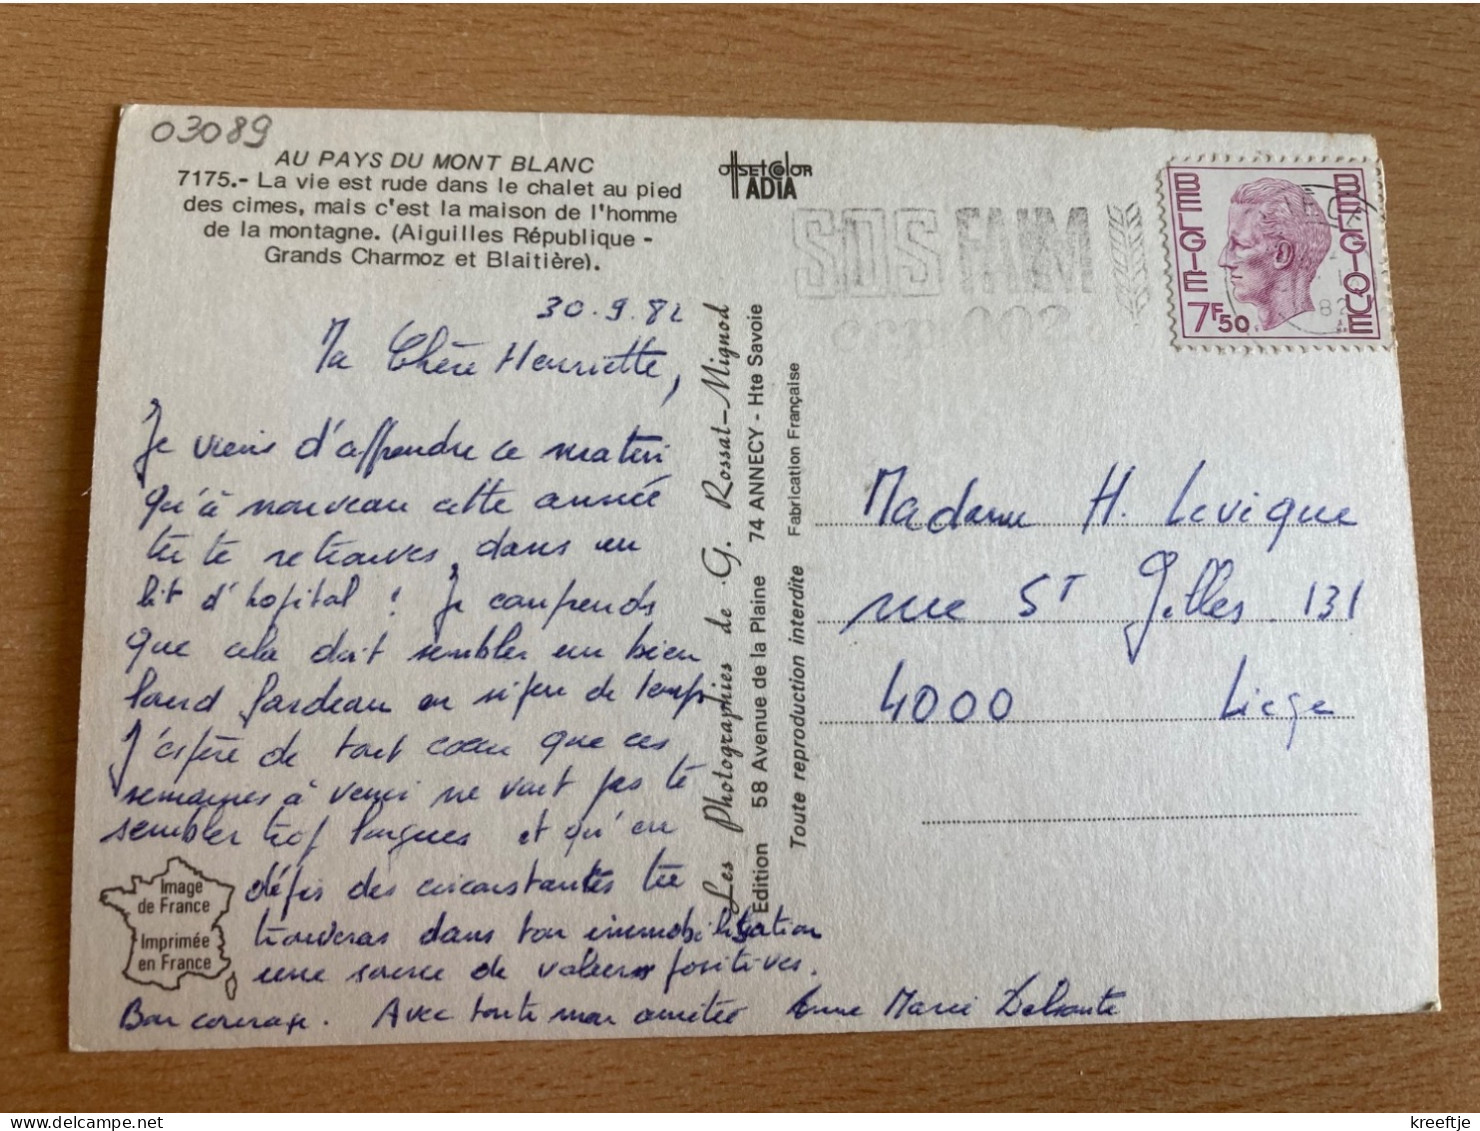 03089
AU PAYS DU MONT BLANC
7175.- La vie est rude dans le chalet au pied
des cimes, mais c'est la maison de l'homme
de la montagne. (Aiguilles République -
Grands Charmoz et Blaitière).
30.9.82
Ma Chère Henriette,
Je viens d'apprendre ce matin
qu'à nouveau cette année
tu te retrouves dans un
lit d'hopital ! Je comprends
que cela doit sembler un bien
lourd fardeau en si peu de temps
J'espère de tout coeur que ces
semaines à venir ne vont pas te
sembler trop longues et qu'en
dépis des circonstantes tu
trouveras dans ton immobilisation
une source de valeurs positives.
Bon courage. Avec toute mon amitié Anne Marie
Image
de France
Imprimée
en France
OFFSETCOLOR
ADIA
Les Photographies de G. Rossat-Mignod
Edition 58 Avenue de la Plaine 74 ANNECY - Hte Savoie
Toute reproduction interdite Fabrication Française
S.O.S FAIM
ccp 000
BELGIE
BELGIQUE
7F50
82
Madame H. Levigue
rue ST Gilles 131
4000 Liège
kreeftje